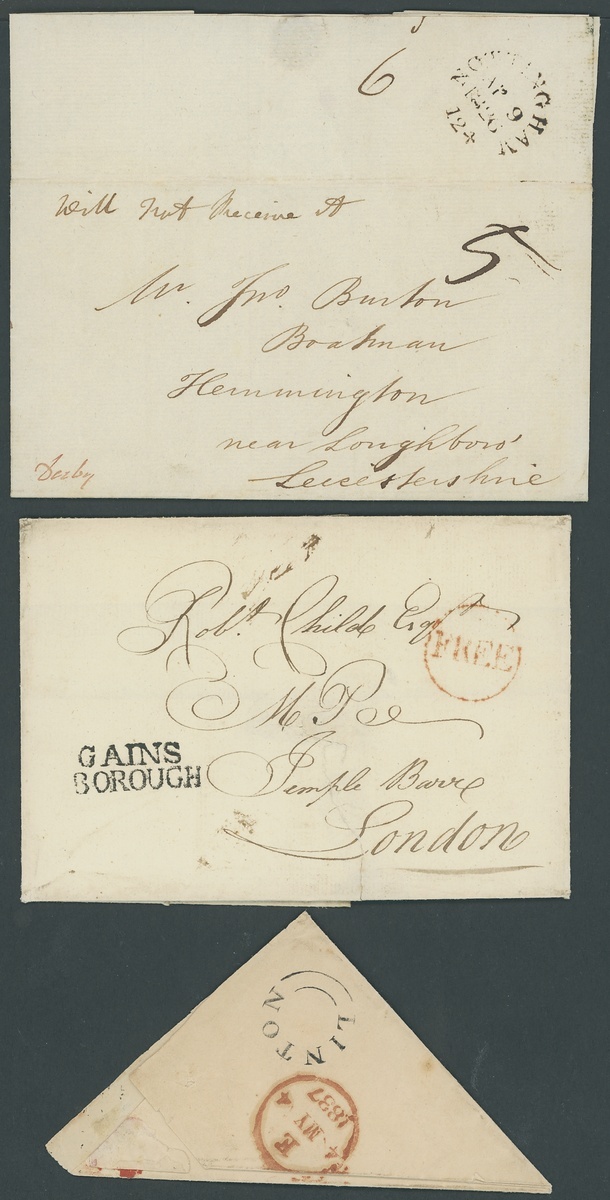 6
NOTTINGHAM
AP 9
1826
124
Will not Receive it
5
Mr. Jno. Burton
Boatman
Hemmington
near Loughboro'
Leicestershire
Derby
Robt. Child Esqr
FREE
M P
GAINS
BOROUGH
Temple Barr
London
LINTON
E
4 MY 4
1837